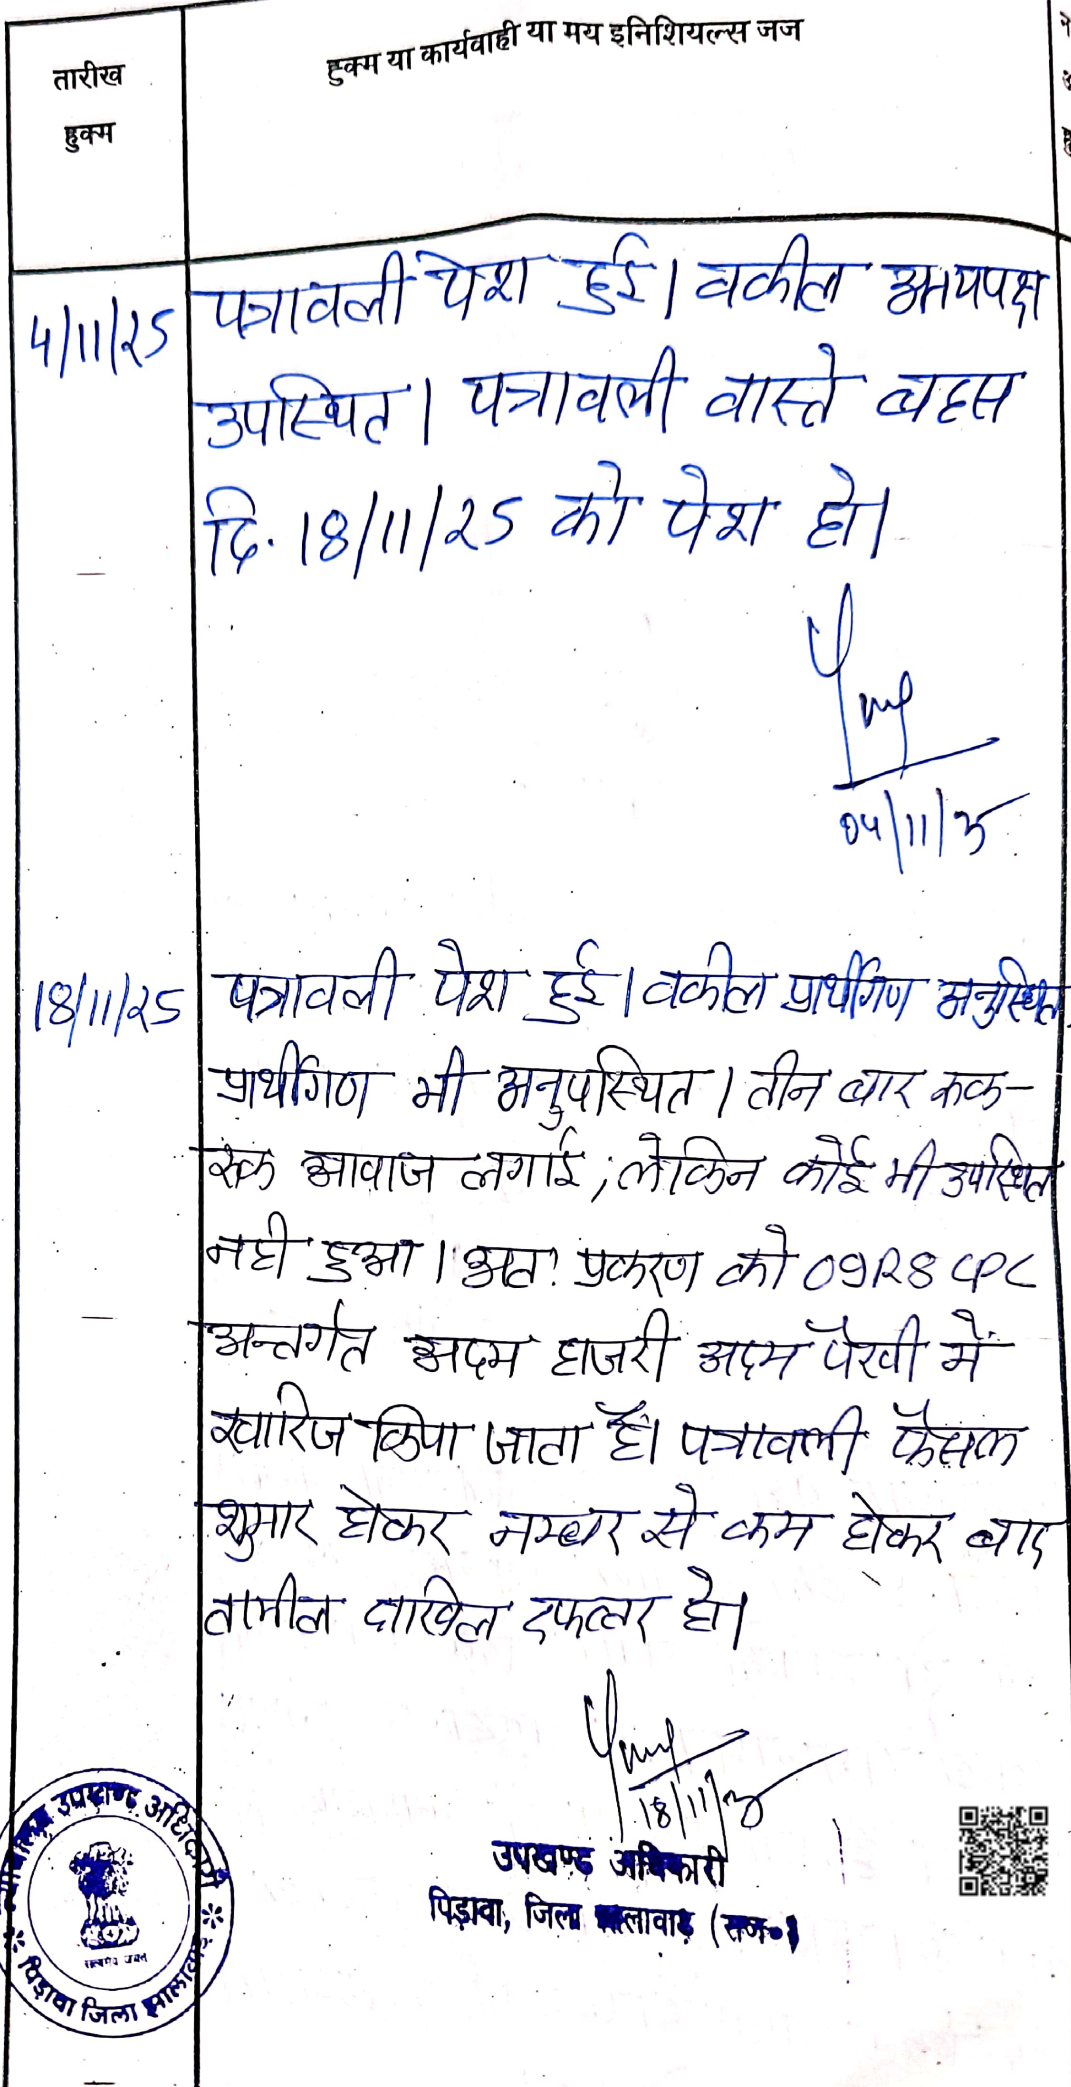 तारीख
हुक्म
हुक्म या कार्यवाही या मय इनिशियल्स जज
4/11/25
पत्रावली पेश हुई। वकील उभयपक्ष
उपस्थित। पत्रावली वास्ते बहस
दि. 18/11/25 को पेश हो।
04/11/25
18/11/25
पत्रावली पेश हुई। वकील प्रार्थीगण अनुपस्थित
प्रार्थीगण भी अनुपस्थित। तीन बार रुक-
रुक आवाज लगाई, लेकिन कोई भी उपस्थित
नही हुआ। अतः प्रकरण को O9R8 CPC
अन्तर्गत अदम हाजरी अदम पैरवी में
खारिज किया जाता है। पत्रावली फैसल
शुमार होकर नम्बर से कम होकर बाद
तामील दाखिल दफ्तर हो।
18/11/25
उपखण्ड अधिकारी
पिड़ावा, जिला झालावाड़ (राज०)
न्यायालय उपखण्ड अधिकारी
सत्यमेव जयते
पिड़ावा जिला झालावाड़